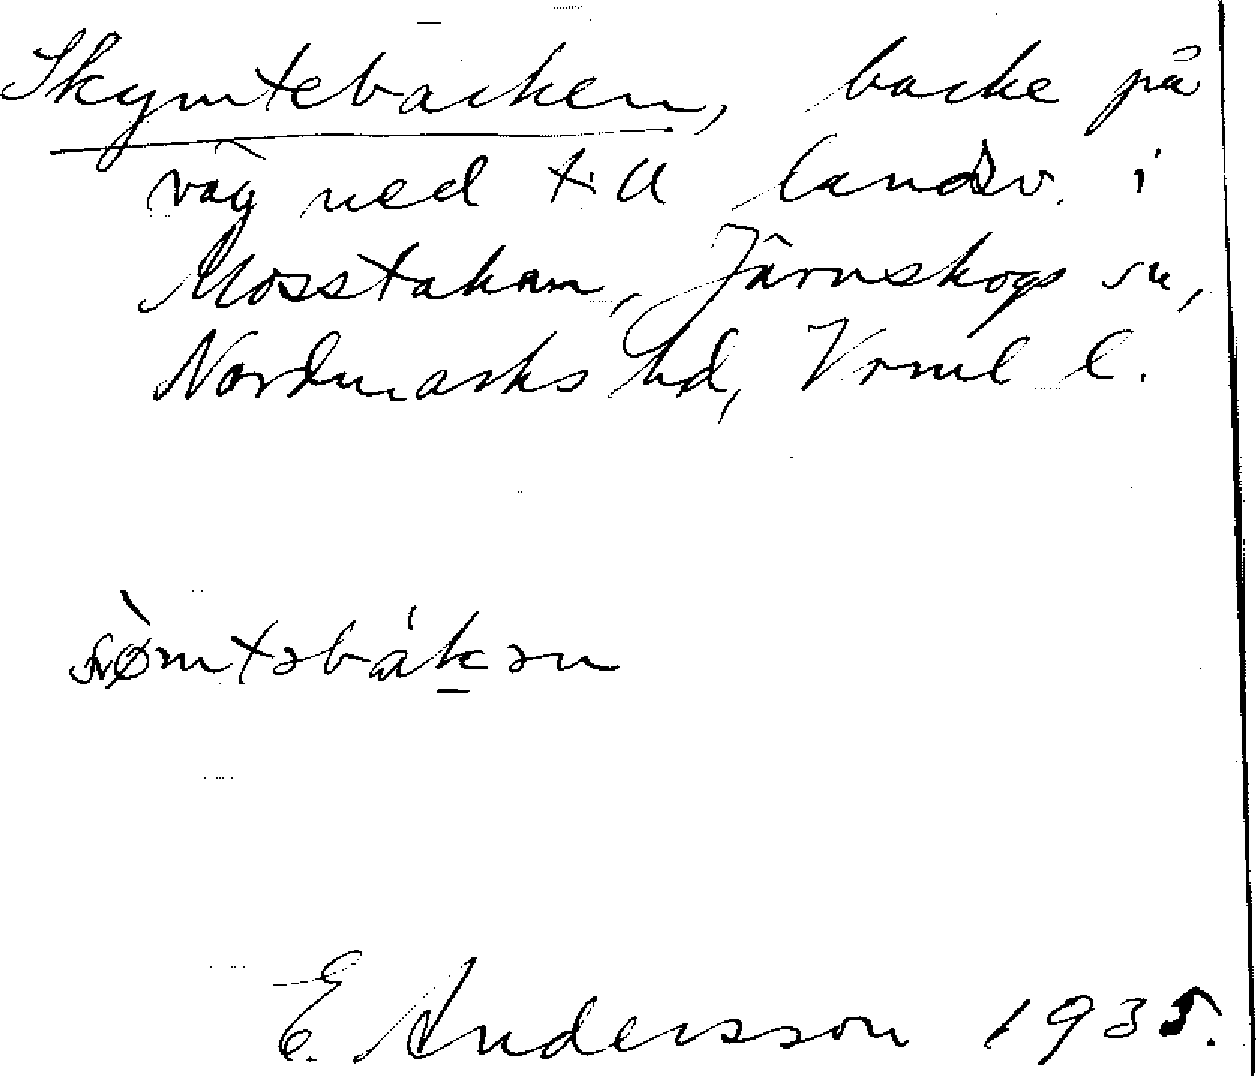 Skymtebacken, backe på
väg ned till landsv. i
Mosstakan, Järnskogs sn,
Nordmarks hd, Vrml l.
E. Andersson 1935.